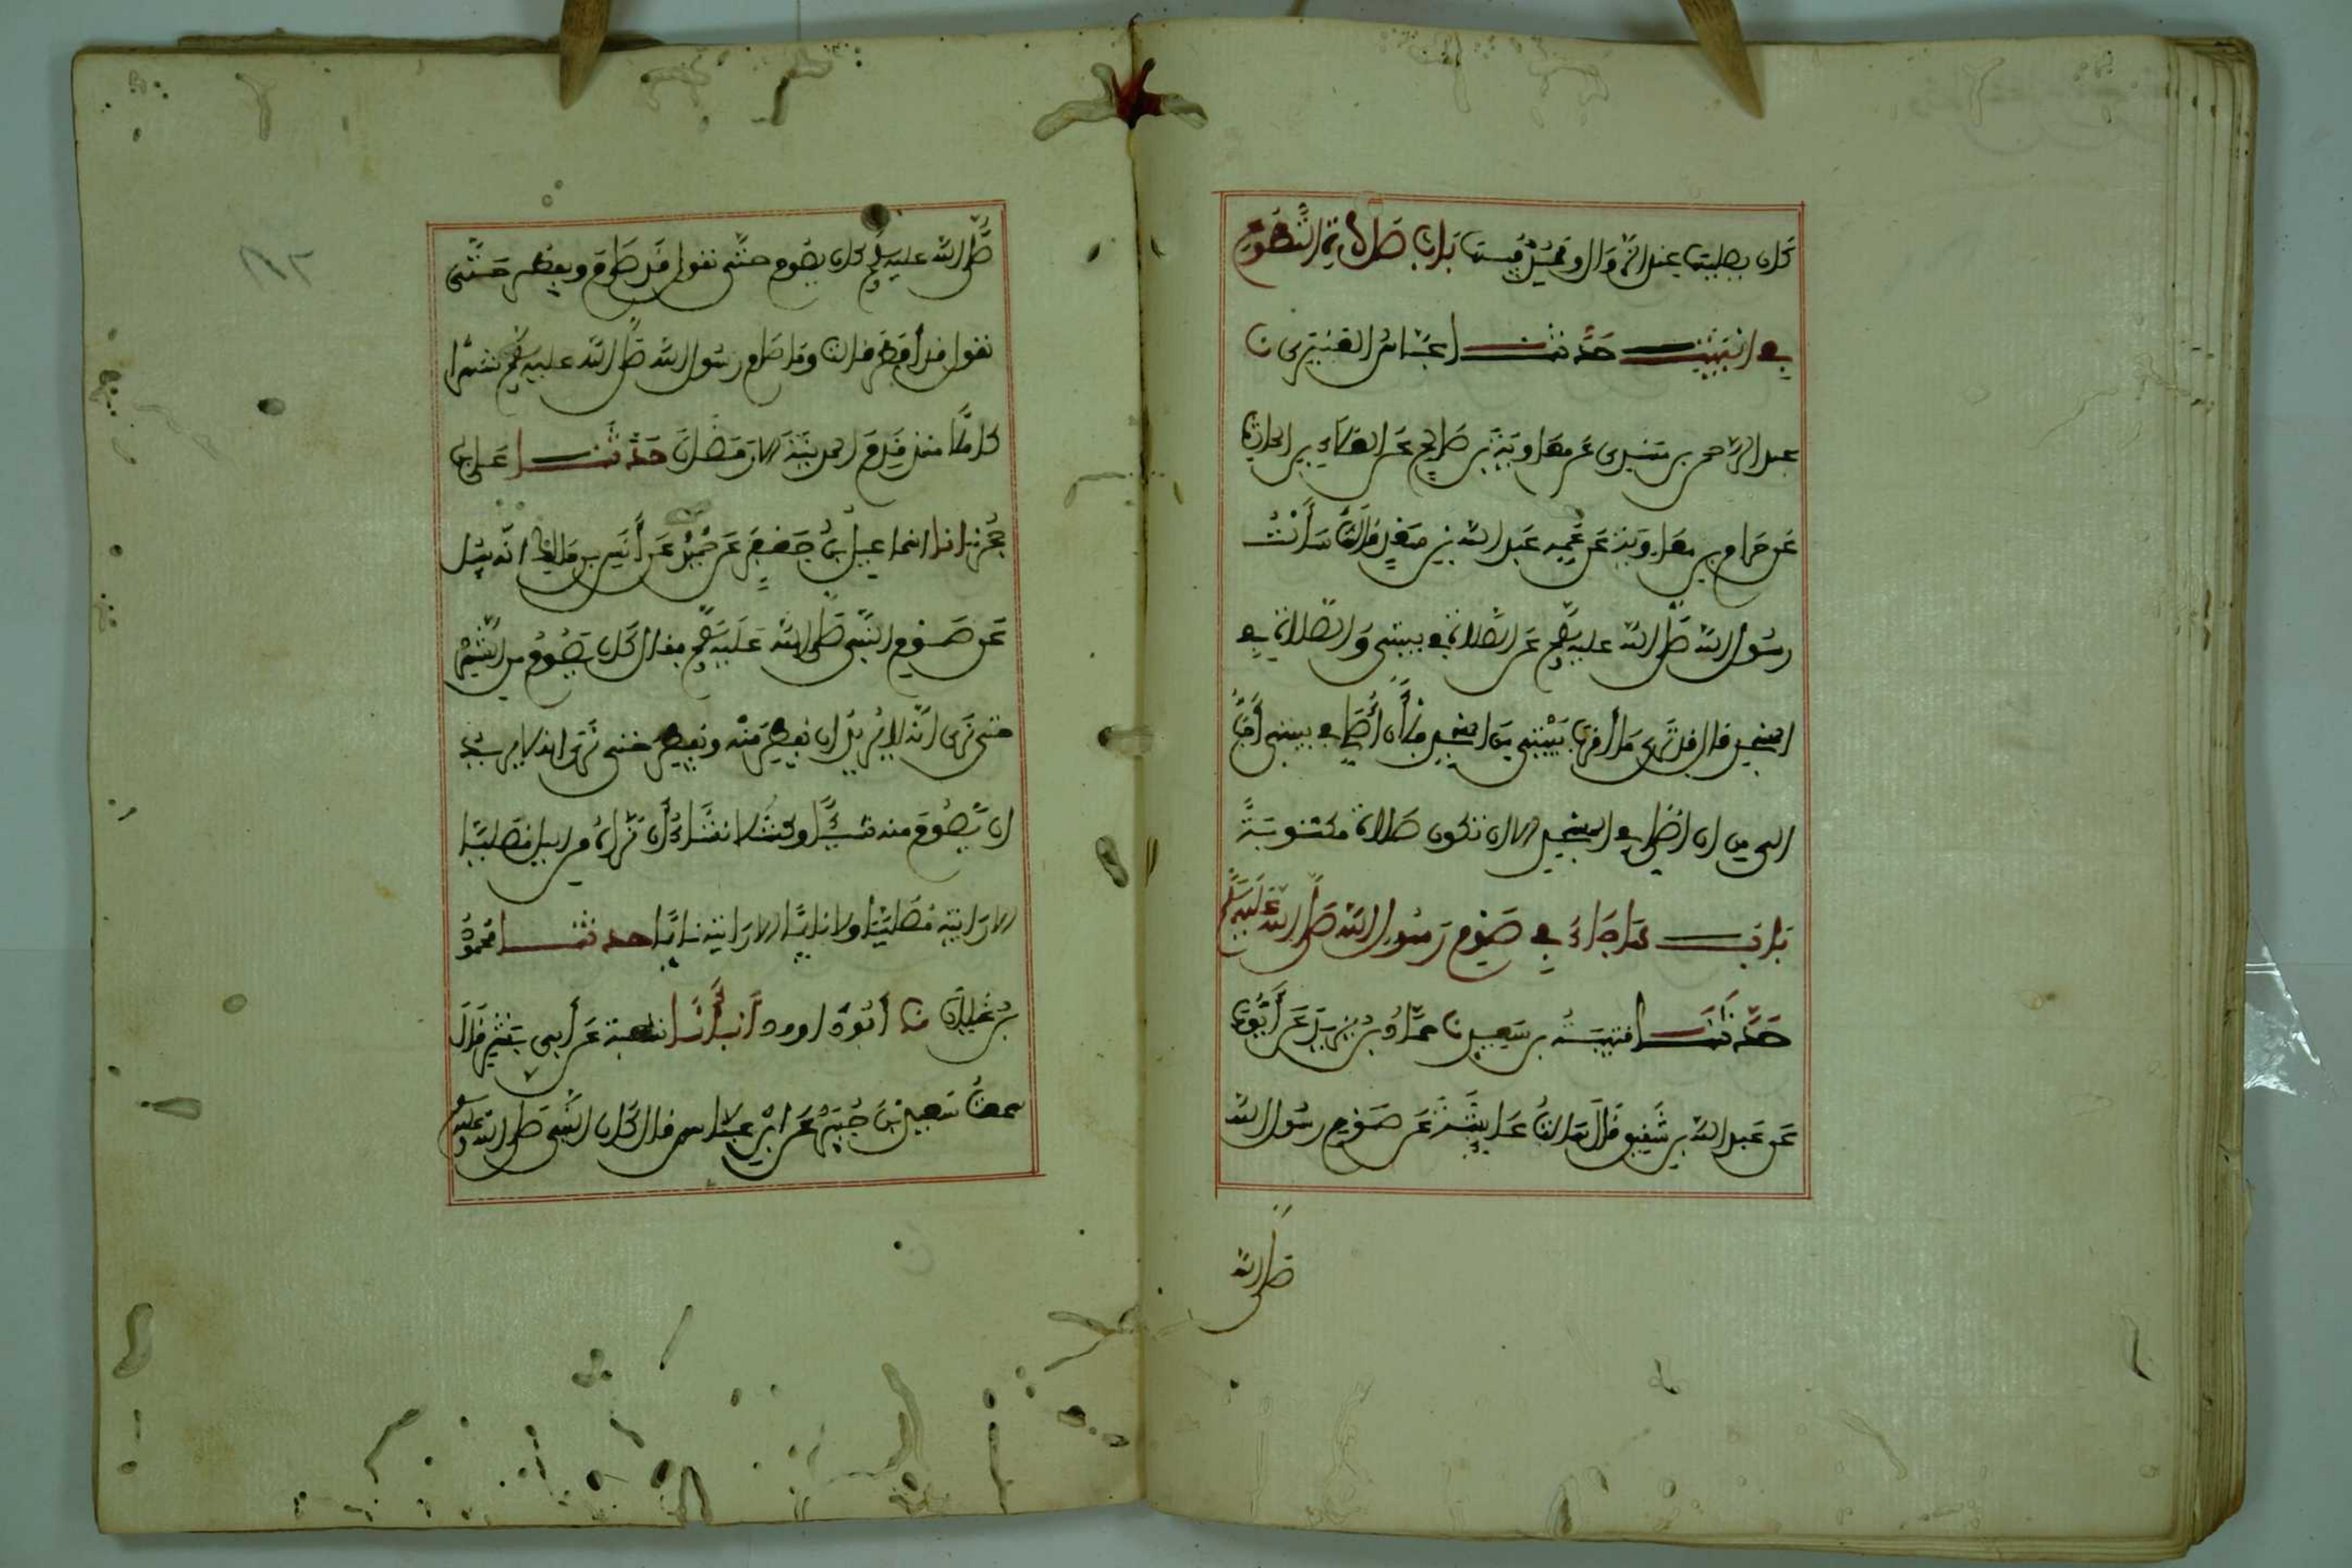 كان يصليها عند الزوال ويمد فيها باب صلاة التطوع
في البيت حدثنا عباس العنبري نا
عبد الرحمن بن مهدي عن معاوية بن صالح عن العلاء بن الحارث
عن حرام بن معاوية عن عمه عبد الله بن سعد قال سألت
رسول الله صلى الله عليه وسلم عن الصلاة في بيتي والصلاة في
المسجد قال قد ترى ما أقرب بيتي من المسجد فلأن أصلي في بيتي أحب
إلي من ان أصلي في المسجد إلا ان تكون صلاة مكتوبة
باب ما جاء في صوم رسول الله صلى الله عليه وسلم
حدثنا قتيبة بن سعيد نا حماد بن زيد عن أيوب
عن عبد الله بن شقيق قال سالت عايشة عن صوم رسول الله
صلى الله
صلى الله عليه وسلم كان يصوم حتى نقول قد صام ويفطر حتى
نقول قد أفطر قالت وما صام رسول الله صلى الله عليه وسلم شهرا
كاملا منذ قدم المدينة إلا رمضان حدثنا علي بن
حجر انا اسماعيل بن جعفر عن حميد عن أنس بن مالك انه سئل
عن صوم النبي صلى الله عليه وسلم فقال كان يصوم من الشهر
حتى نرى انه لا يريد ان يفطر منه ويفطر حتى نرى انه لا يريد
ان يصوم منه شيئا وكنت لا تشاء أن تراه من الليل مصليا
إلا رايته مصليا ولا نايما إلا رايته نايما حدثنا محمود
بن غيلان نا أبو داوود أنبأنا شعبة عن أبي بشر قال
سمعت سعيد بن جبير عن ابن عباس قال كان النبي صلى الله عليه وسلم